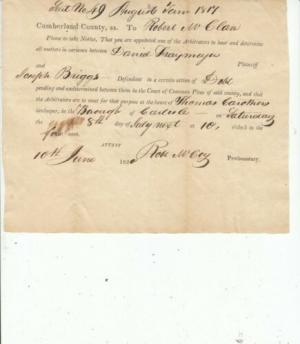 No. 49 August Term 1819
Cumberland County, ss. To Robert McClan
Please to take Notice, That you are appointed one of the Arbitrators to hear and determine
all matters in variance between David
Plaintiff
and Joseph Briggs Defendant in a certain action of Debt
pending and undetermined between them in the Court of Common Pleas of said county, and that
the Arbitrators are to meet for that purpose at the house of Thomas Carothers
in the Borough of Carlisle on Saturday
the 8th day of July next at 10, o'clock in the
fore noon.
ATTEST
10th June 1820 McCoy Prothonotary.